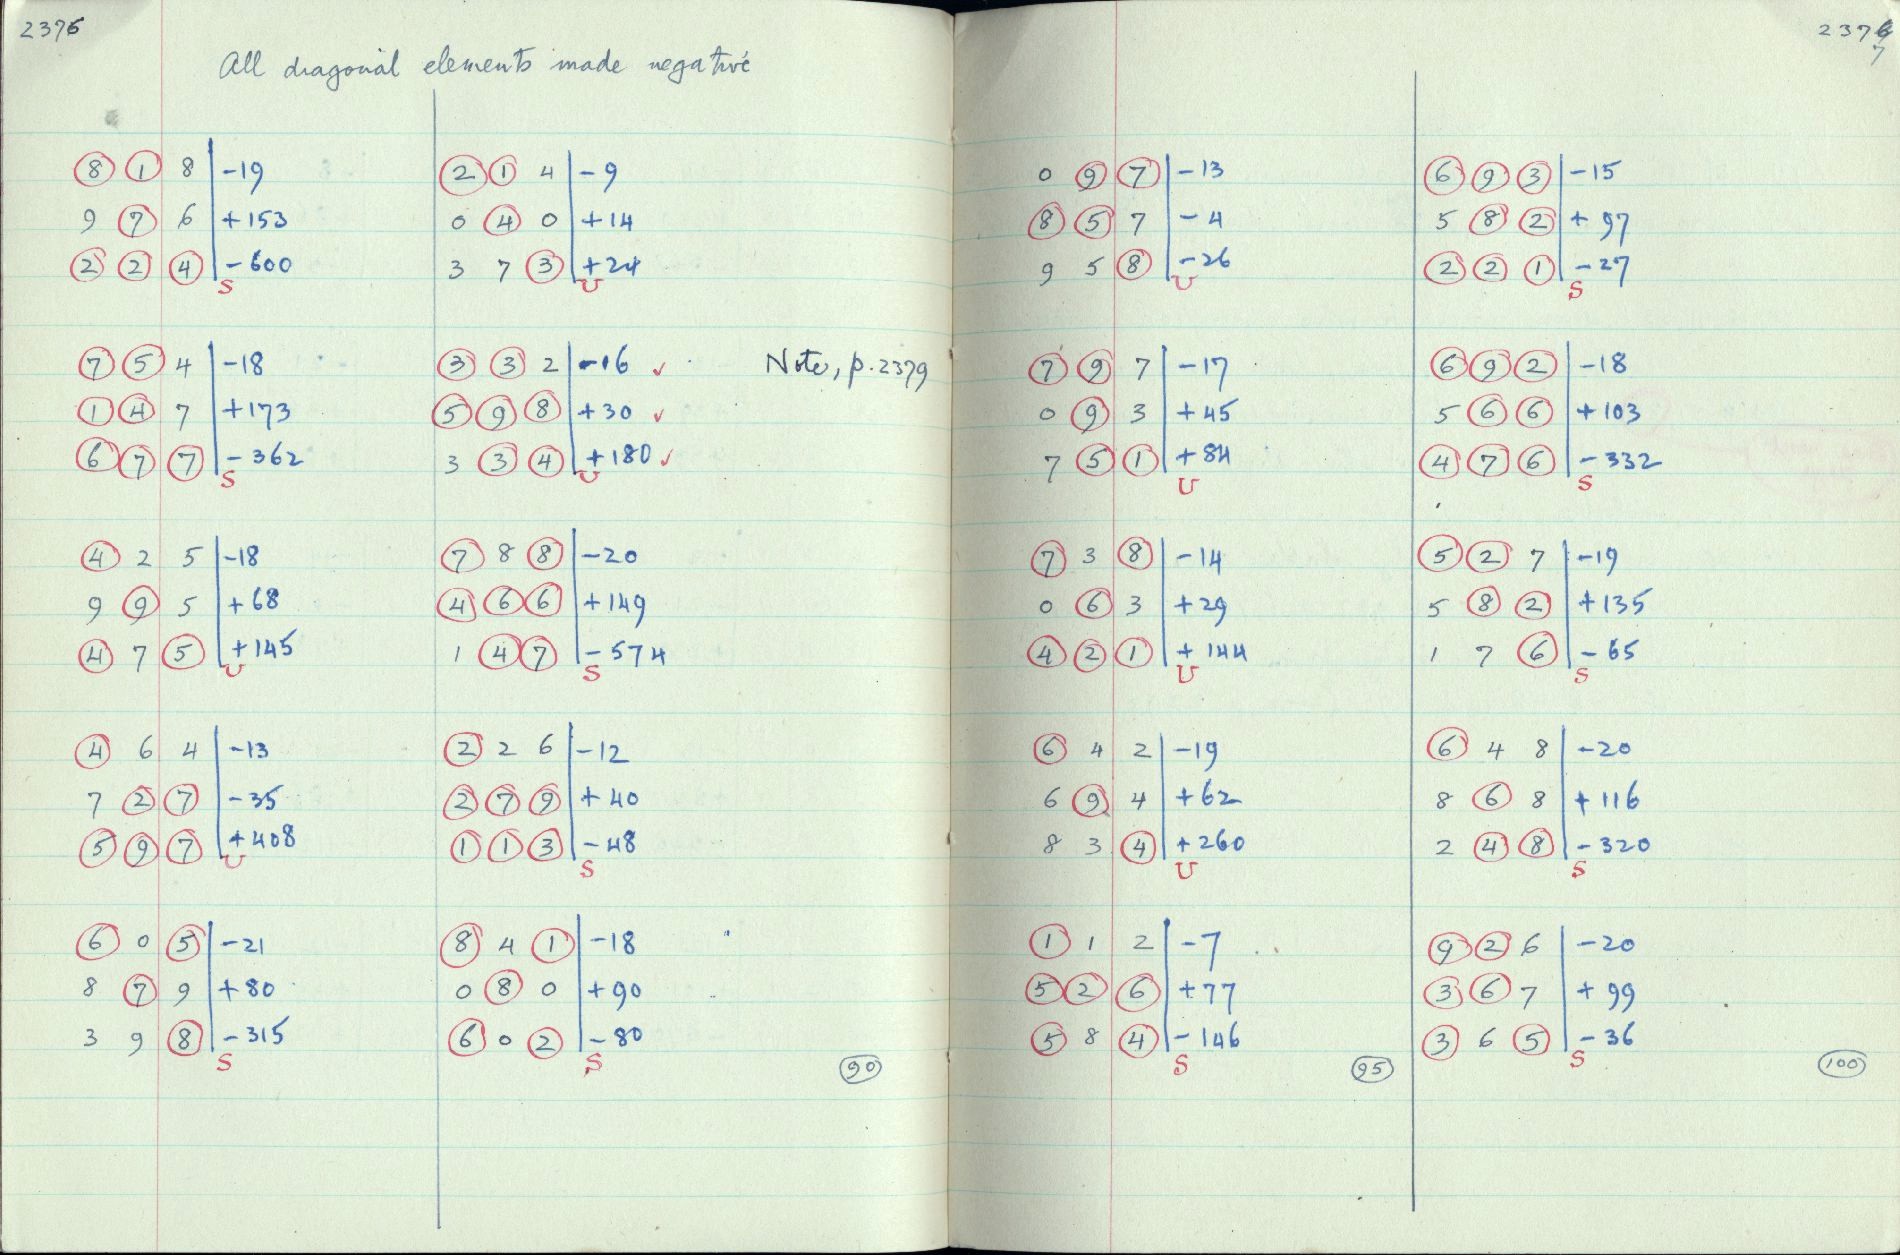 2376
All diagonal elements made negative
8 1 8 -19
9 7 6 +153
2 2 4 -600
S
7 5 4 -18
1 4 7 +173
6 7 7 -362
S
4 2 5 -18
9 9 5 +68
4 7 5 +145
U
4 6 4 -13
7 2 7 -35
5 9 7 +408
U
6 0 5 -21
8 7 9 +80
3 9 8 -315
S
2 1 4 -9
0 4 0 +14
3 7 3 +24
U
3 3 2 -16 ✓
5 9 8 +30 ✓
3 3 4 +180 ✓
U
Note, p. 2379
7 8 8 -20
4 6 6 +149
1 4 7 -574
S
2 2 6 -12
2 7 9 +40
1 1 3 -48
S
8 4 1 -18
0 8 0 +90
6 0 2 -80
S
90
2376
7
0 9 7 -13
8 5 7 -4
9 5 8 -26
U
7 9 7 -17
0 9 3 +45
7 5 1 +84
U
7 3 8 -14
0 6 3 +29
4 2 1 +144
U
6 4 2 -19
6 9 4 +62
8 3 4 +260
U
1 1 2 -7
5 2 6 +77
5 8 4 -146
S
95
6 9 3 -15
5 8 2 +97
2 2 1 -27
S
6 9 2 -18
5 6 6 +103
4 7 6 -332
S
5 2 7 -19
5 8 2 +135
1 7 6 -65
S
6 4 8 -20
8 6 8 +116
2 4 8 -320
S
9 2 6 -20
3 6 7 +99
3 6 5 -36
S
100